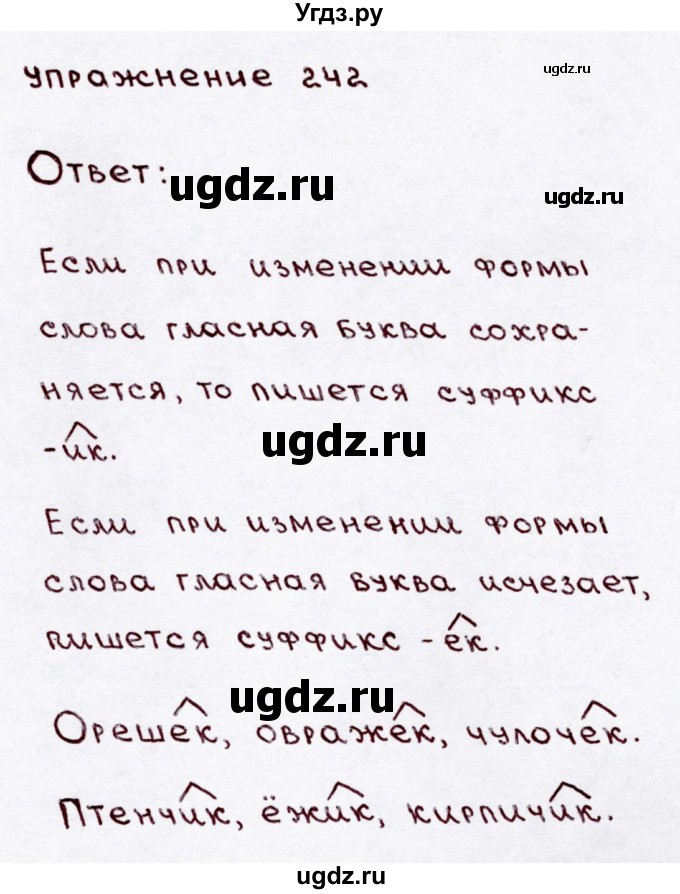 Угдз.ру
Упражнение 242
ugdz.ru
Ответ:
ugdz.ru
ugdz.ru
Если при изменении формы
слова гласная буква сохра-
няется, то пишется суффикс
-ик.
ugdz.ru
Если при изменении формы
слова гласная буква исчезает,
пишется суффикс -ёк.
ugdz.ru
Орешек, овражек, чулочек.
Птенчик, ёжик, кирпичик.
ugdz.ru